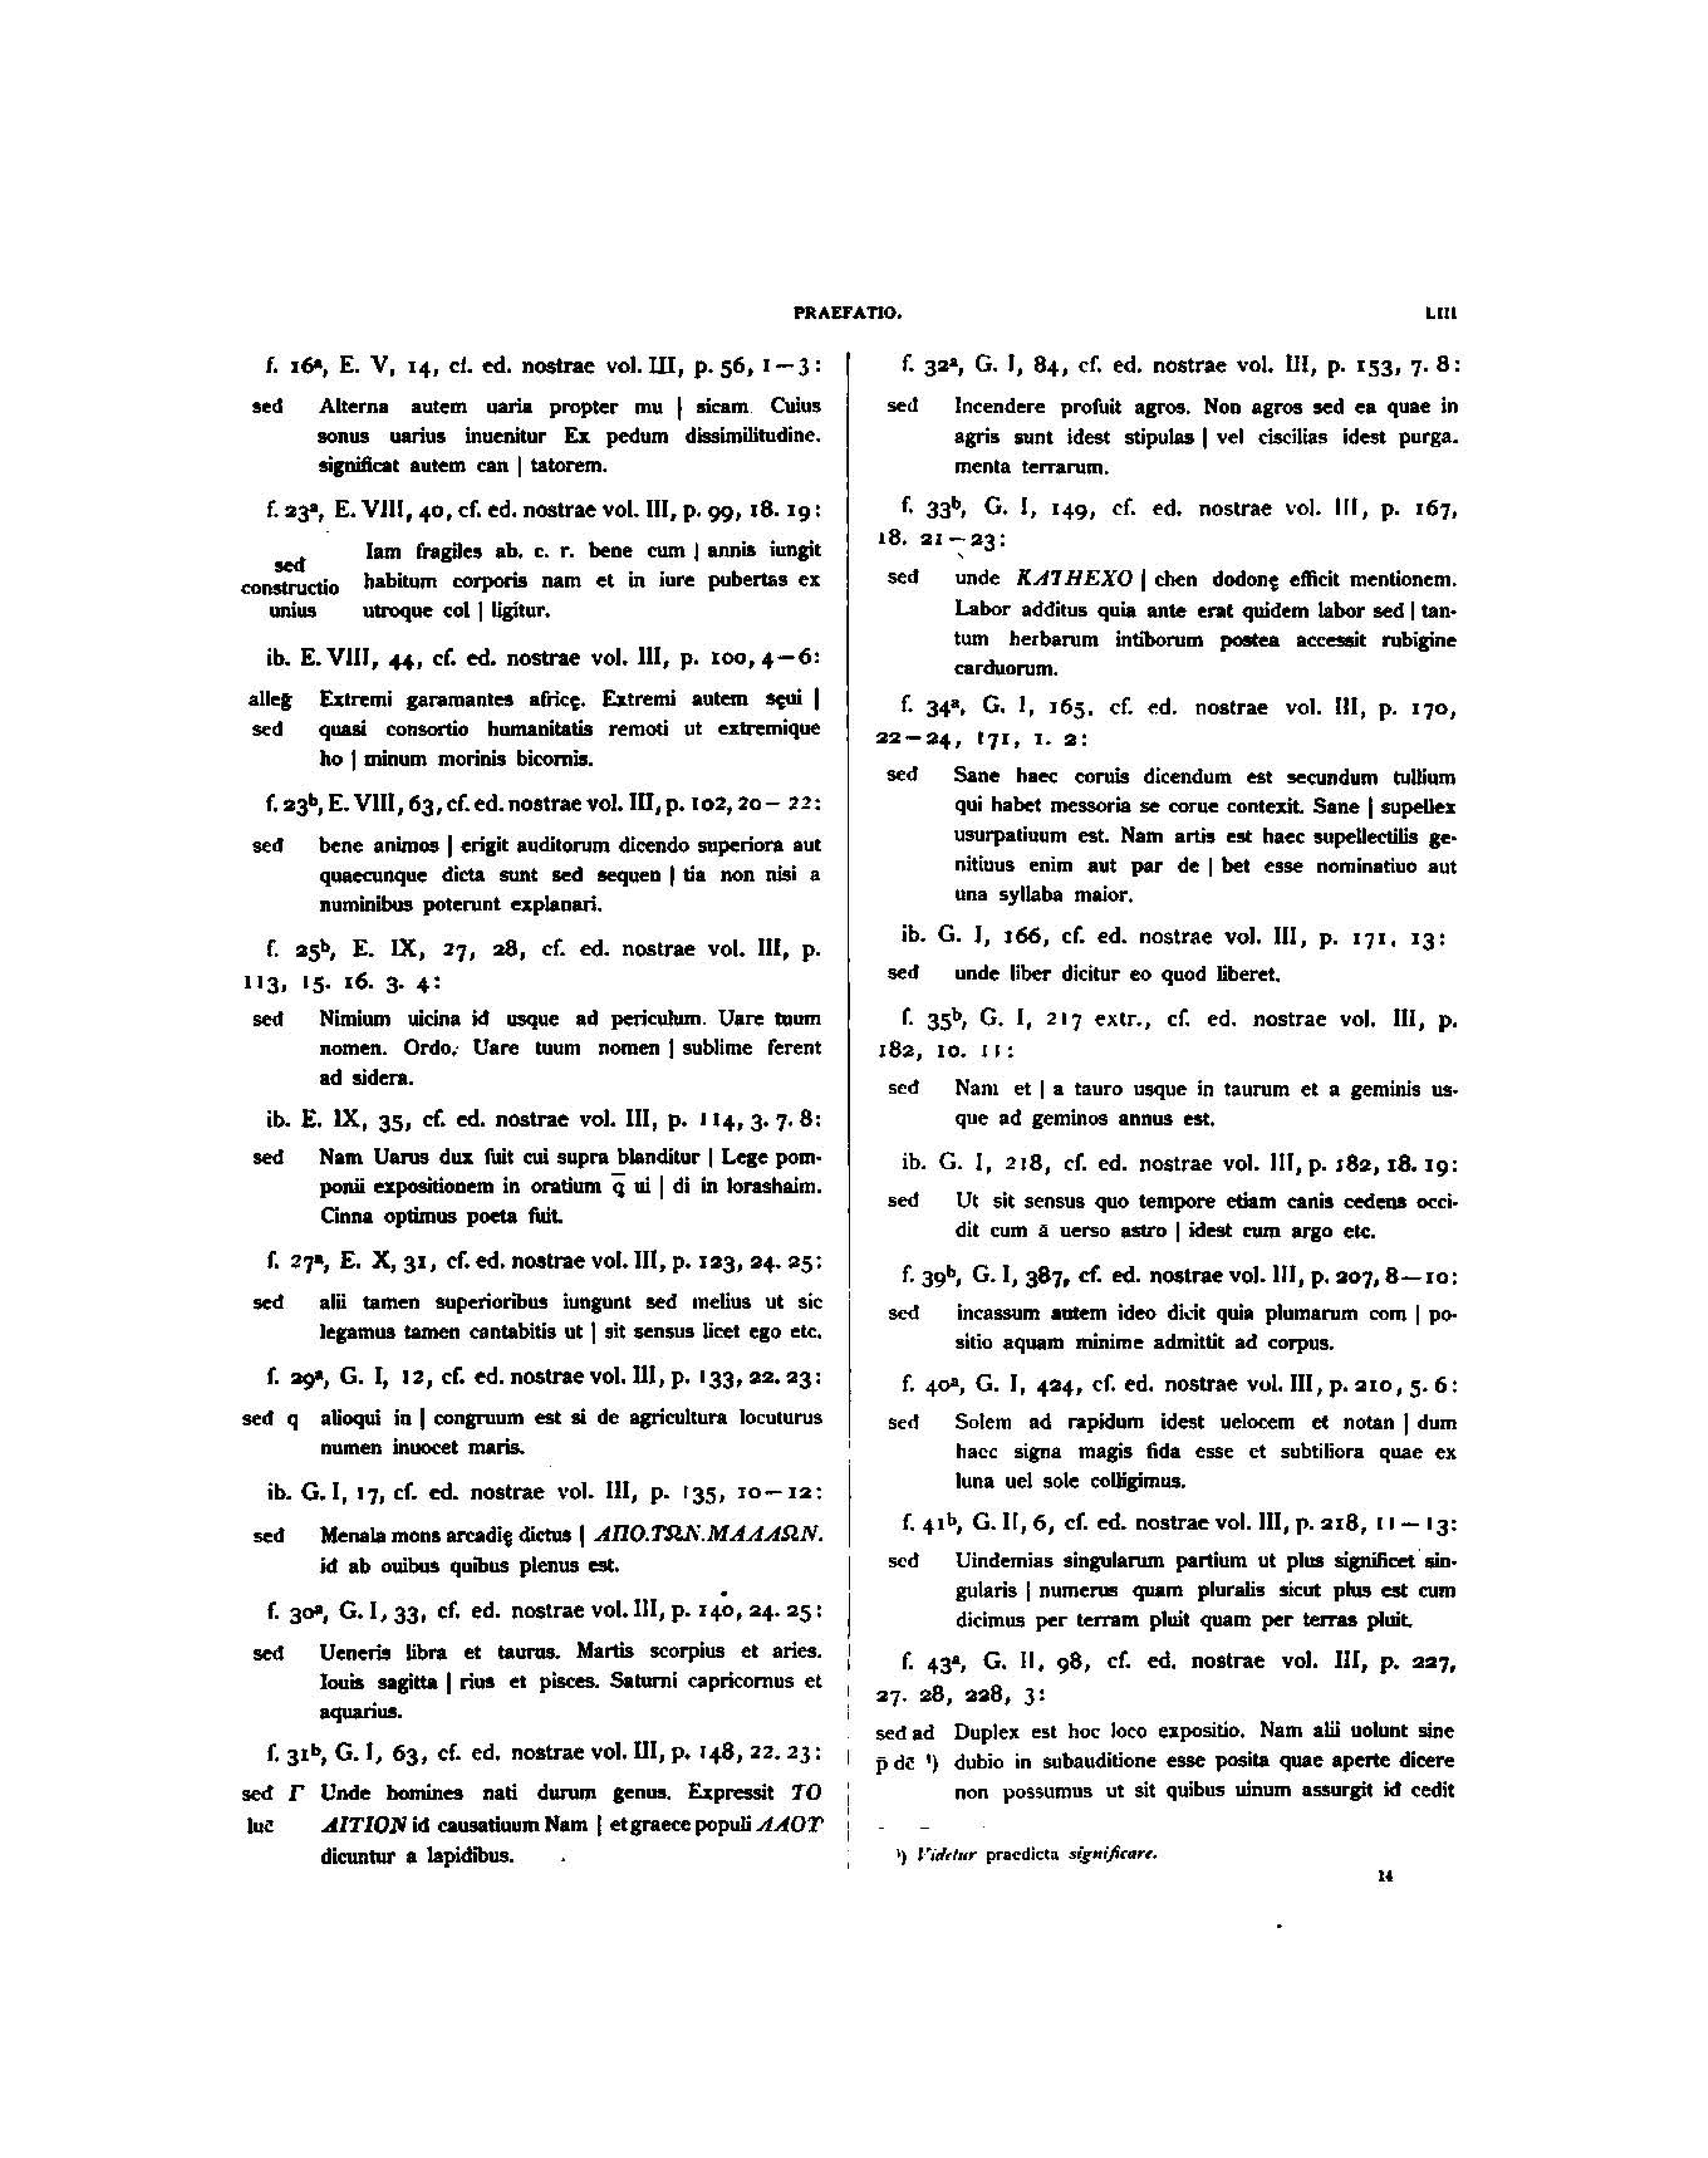 PRAEFATIO.
LIII
f. 16ᵃ, E. V, 14, cf. ed. nostrae vol. III, p. 56, 1—3:
sed Alterna autem uaria propter mu | sicam Cuius
sonus uarius inuenitur Ex pedum dissimilitudine.
significat autem can | tatorem.
f. 23ᵃ, E. VIII, 40, cf. ed. nostrae vol. III, p. 99, 18. 19:
sed constructio unius Iam fragiles ab. c. r. bene cum | annis iungit
habitum corporis nam et in iure pubertas ex
utroque col | ligitur.
ib. E. VIII, 44, cf. ed. nostrae vol. III, p. 100, 4—6:
alleg Extremi garamantes africę. Extremi autem sęui |
sed quasi consortio humanitatis remoti ut extremique
ho | minum morinis bicornis.
f. 23ᵇ, E. VIII, 63, cf. ed. nostrae vol. III, p. 102, 20— 22:
sed bene animos | erigit auditorum dicendo superiora aut
quaecunque dicta sunt sed sequen | tia non nisi a
numinibus poterunt explanari.
f. 25ᵇ, E. IX, 27, 28, cf. ed. nostrae vol. III, p.
113, 15. 16. 3. 4:
sed Nimium uicina id usque ad periculum. Uare tuum
nomen. Ordo. Uare tuum nomen | sublime ferent
ad sidera.
ib. E. IX, 35, cf. ed. nostrae vol. III, p. 114, 3. 7. 8:
sed Nam Uarus dux fuit cui supra blanditur | Lege pom-
ponii expositionem in oratium q̄ ui | di in lorashaim.
Cinna optimus poeta fuit.
f. 27ᵃ, E. X, 31, cf. ed. nostrae vol. III, p. 123, 24. 25:
sed alii tamen superioribus iungunt sed melius ut sic
legamus tamen cantabitis ut | sit sensus licet ego etc.
f. 29ᵃ, G. I, 12, cf. ed. nostrae vol. III, p. 133, 22. 23:
sed q alioqui in | congruum est si de agricultura locuturus
numen inuocet maris.
ib. G. I, 17, cf. ed. nostrae vol. III, p. 135, 10—12:
sed Menala mons arcadię dictus | ΑΠΟ.ΤΩΝ.ΜΑΛΛΩΝ.
id ab ouibus quibus plenus est.
f. 30ᵃ, G. I, 33, cf. ed. nostrae vol. III, p. 140, 24. 25:
sed Ueneris libra et taurus. Martis scorpius et aries.
Iouis sagitta | rius et pisces. Saturni capricornus et
aquarius.
f. 31ᵇ, G. I, 63, cf. ed. nostrae vol. III, p. 148, 22. 23:
sed Γ Unde homines nati durum genus. Expressit ΤΟ
luc̄ ΑΙΤΙΟΝ id causatiuum Nam | et graece populi ΛΑΟΥ
dicuntur a lapidibus.
f. 32ᵃ, G. I, 84, cf. ed. nostrae vol. III, p. 153, 7. 8:
sed Incendere profuit agros. Non agros sed ea quae in
agris sunt idest stipulas | vel ciscilias idest purga-
menta terrarum.
f. 33ᵇ, G. I, 149, cf. ed. nostrae vol. III, p. 167,
18. 21—23:
sed unde ΚΑΤΗΕΧΟ | chen dodonę efficit mentionem.
Labor additus quia ante erat quidem labor sed | tan-
tum herbarum intiborum postea accessit rubigine
carduorum.
f. 34ᵃ, G. I, 165, cf. ed. nostrae vol. III, p. 170,
22—24, 171, 1. 2:
sed Sane haec coruis dicendum est secundum tullium
qui habet messoria se corue contexit. Sane | supellex
usurpatiuum est. Nam artis est haec supellectilis ge-
nitiuus enim aut par de | bet esse nominatiuo aut
una syllaba maior.
ib. G. I, 166, cf. ed. nostrae vol. III, p. 171, 13:
sed unde liber dicitur eo quod liberet.
f. 35ᵇ, G. I, 217 extr., cf. ed. nostrae vol. III, p.
182, 10. 11:
sed Nam et | a tauro usque in taurum et a geminis us-
que ad geminos annus est.
ib. G. I, 218, cf. ed. nostrae vol. III, p. 182, 18. 19:
sed Ut sit sensus quo tempore etiam canis cedens occi-
dit cum ā uerso astro | idest cum argo etc.
f. 39ᵇ, G. I, 387, cf. ed. nostrae vol. III, p. 207, 8—10:
sed incassum autem ideo dicit quia plumarum com | po-
sitio aquam minime admittit ad corpus.
f. 40ᵃ, G. I, 424, cf. ed. nostrae vol. III, p. 210, 5. 6:
sed Solem ad rapidum idest uelocem et notan | dum
haec signa magis fida esse et subtiliora quae ex
luna uel sole colligimus.
f. 41ᵇ, G. II, 6, cf. ed. nostrae vol. III, p. 218, 11—13:
sed Uindemias singularum partium ut plus significet sin-
gularis | numerus quam pluralis sicut plus est cum
dicimus per terram pluit quam per terras pluit.
f. 43ᵃ, G. II, 98, cf. ed. nostrae vol. III, p. 227,
27. 28, 228, 3:
sed ad Duplex est hoc loco expositio. Nam alii uolunt sine
p̄ dc̄ ¹) dubio in subauditione esse posita quae aperte dicere
non possumus ut sit quibus uinum assurgit id cedit
¹) Videtur praedicta significare.
14